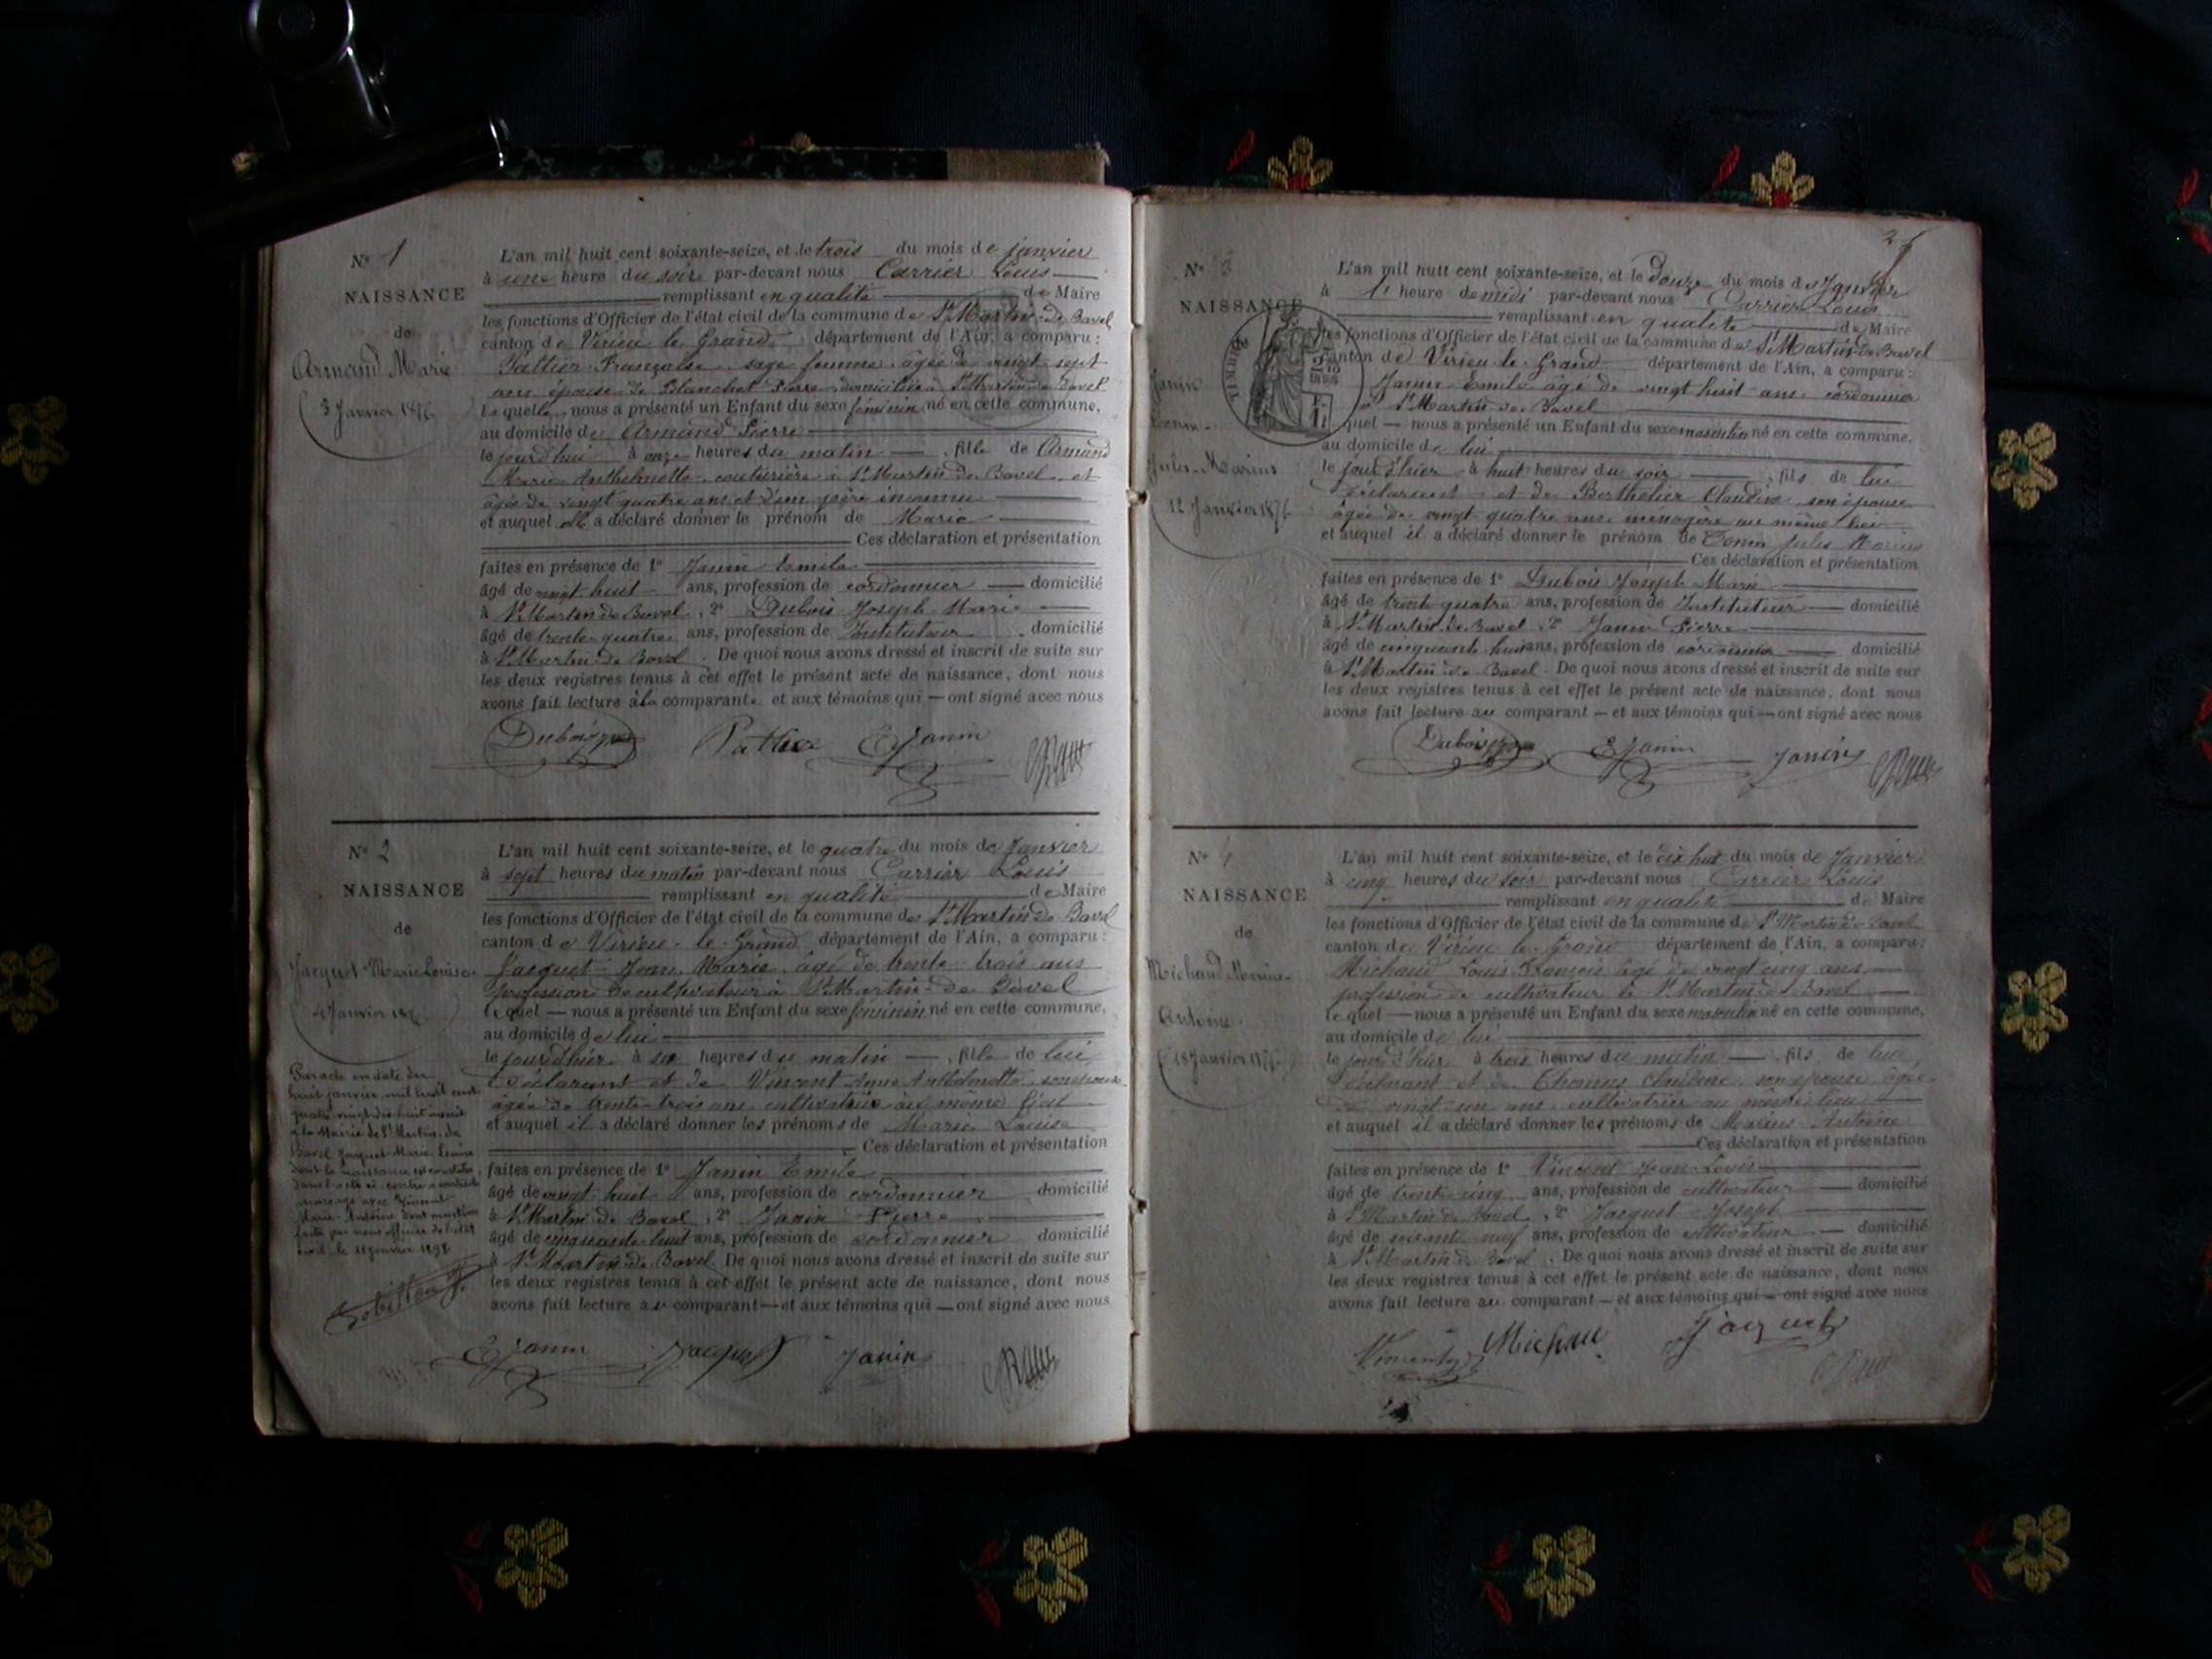 N° 1
NAISSANCE
de
Armand Marie
3 Janvier 1876
L'an mil huit cent soixante-seize, et le trois du mois de janvier
à une heure du soir par-devant nous Carrier Louis
remplissant en qualité de Maire
les fonctions d'Officier de l'état civil de la commune de St Martin-de Bavel
canton de Virieu le Grand département de l'Ain, a comparu :
Pattier Françoise, sage femme, âgée de vingt sept
ans épouse de Blanchet Pierre, domiciliée à St Martin de Bavel
Laquelle nous a présenté un Enfant du sexe féminin né en cette commune,
au domicile de Armand Pierre
le jourd'hui à onze heures du matin , fille de Armand
Marie Anthelmette couturière à St Martin de Bavel et
âgée de vingt quatre ans et d'un père inconnu
et auquel elle a déclaré donner le prénom de Marie
Ces déclaration et présentation
faites en présence de 1° Janin Emile
âgé de vingt huit ans, profession de cordonnier domicilié
à St Martin de Bavel, 2° Dubois Joseph Marie
âgé de trente quatre ans, profession de Instituteur domicilié
à St Martin de Bavel. De quoi nous avons dressé et inscrit de suite sur
les deux registres tenus à cet effet le présent acte de naissance, dont nous
avons fait lecture à la comparante et aux témoins qui — ont signé avec nous
Dubois Pattier E Janin
N° 2
NAISSANCE
de
Jacquet Marie Louise
4 Janvier 187
Par acte en date du
huit janvier mil huit cent
quatre vingt dix huit inscrit
à la Mairie de St Martin de
Bavel Jacquet Marie Louise
dont la naissance est constatée
dans l'acte ci-contre a contracté
mariage avec Vincent
Marie Antoine dont mention
faite par nous officier de l'état
civil le 11 janvier 1898
L'an mil huit cent soixante-seize, et le quatre du mois de Janvier
à sept heures du matin par-devant nous Carrier Louis
remplissant en qualité de Maire
les fonctions d'Officier de l'état civil de la commune de St Martin de Bavel
canton de Virieu-le-Grand département de l'Ain, a comparu :
Jacquet Jean Marie âgé de trente trois ans
profession de cultivateur à St Martin-de Bavel
Lequel — nous a présenté un Enfant du sexe féminin né en cette commune,
au domicile de lui
le jour d'hier à six heures du matin — , fille de lui
déclarant et de Vincent Anne Anthelmette, son épouse
âgée de trente-trois ans, cultivatrice au même lieu
et auquel il a déclaré donner les prénoms de Marie Louise
Ces déclaration et présentation
faites en présence de 1° Janin Emile
âgé de vingt huit ans, profession de cordonnier domicilié
à St Martin de Bavel, 2° Janin Pierre
âgé de cinquante huit ans, profession de cordonnier domicilié
à St Martin de Bavel. De quoi nous avons dressé et inscrit de suite sur
les deux registres tenus à cet effet le présent acte de naissance, dont nous
avons fait lecture au comparant — et aux témoins qui — ont signé avec nous
E Janin Jacquet Janin
N° 3
NAISSANCE
TIMBRE
Janin
Jules-Marius
12 Janvier 187
L'an mil huit cent soixante-seize, et le douze du mois de Janvier
à 1 heure de midi par-devant nous Carrier Louis
remplissant en qualité de Maire
les fonctions d'Officier de l'état civil de la commune de St Martin de Bavel
canton de Virieu le Grand département de l'Ain, a comparu :
Janin Emile âgé de vingt huit ans cordonnier
à St Martin de Bavel
quel — nous a présenté un Enfant du sexe masculin né en cette commune,
au domicile de lui
le jour d'hier à huit heures du soir , fils de lui
déclarant et de Berthelier Claudine, son épouse
âgée de vingt quatre ans ménagère au même lieu
et auquel il a déclaré donner le prénom de Jules Marius
Ces déclaration et présentation
faites en présence de 1° Dubois Joseph Marie
âgé de trente quatre ans, profession de Instituteur domicilié
à St Martin de Bavel, 2° Janin Pierre
âgé de cinquante huit ans, profession de cordonnier domicilié
à St Martin de Bavel. De quoi nous avons dressé et inscrit de suite sur
les deux registres tenus à cet effet le présent acte de naissance, dont nous
avons fait lecture au comparant — et aux témoins qui — ont signé avec nous
Dubois E Janin Janin
N° 4
NAISSANCE
de
Michaud Marius-
Antoine
18 Janvier 187
L'an mil huit cent soixante-seize, et le dix huit du mois de Janvier
à cinq heures du soir par-devant nous Carrier Louis
remplissant en qualité de Maire
les fonctions d'Officier de l'état civil de la commune de St Martin de Bavel
canton de Virieu le Grand département de l'Ain, a comparu :
Michaud Louis François âgé de vingt cinq ans,
profession de cultivateur à St Martin de Bavel
Lequel — nous a présenté un Enfant du sexe masculin né en cette commune,
au domicile de lui
le jour d'hier à trois heures du matin — , fils de lui
déclarant et de Thomas Claudine, son épouse âgée
de vingt un ans, cultivatrice au même lieu
et auquel il a déclaré donner les prénoms de Marius Antoine
Ces déclaration et présentation
faites en présence de 1° Vincent Jean-Louis
âgé de trente cinq ans, profession de cultivateur domicilié
à St Martin de Bavel, 2° Jacquet Joseph
âgé de soixante neuf ans, profession de cultivateur domicilié
à St Martin de Bavel. De quoi nous avons dressé et inscrit de suite sur
les deux registres tenus à cet effet le présent acte de naissance, dont nous
avons fait lecture au comparant — et aux témoins qui — ont signé avec nous
Vincent Jacquet